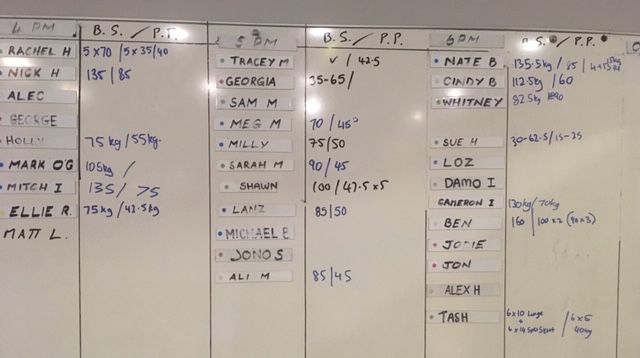 4 PM B.S. / P.T.
RACHEL H 5x70 / 5x35/40
NICK H 135 / 85
ALEC
GEORGE
HOLLY 75kg / 55kg
MARK O'G 105kg /
MITCH I 135 / 75
ELLIE R. 75kg / 42.5kg
MATT L.
5 PM B.S. / P.P.
TRACEY M √ / 42.5
GEORGIA 35-65 /
SAM M
MEG M 70 / 45
MILLY 75/50
SARAH M 90/45
SHAWN 100 / 47.5x5
LANZ 85/50
MICHAEL B
JONO S
ALI M 85/45
6PM B.S. / P.P.
NATE B 135.5kg / 85
CINDY B 112.5kg / 60
WHITNEY 82.5kg
SUE H 30-62.5/15-35
LOZ
DAMO I
CAMERON I 130kg / 70kg
BEN 160 / 100x2 (90x3)
JODIE
JON
ALEX H
TASH 6x10 Lunge / 6x5
+
40kg